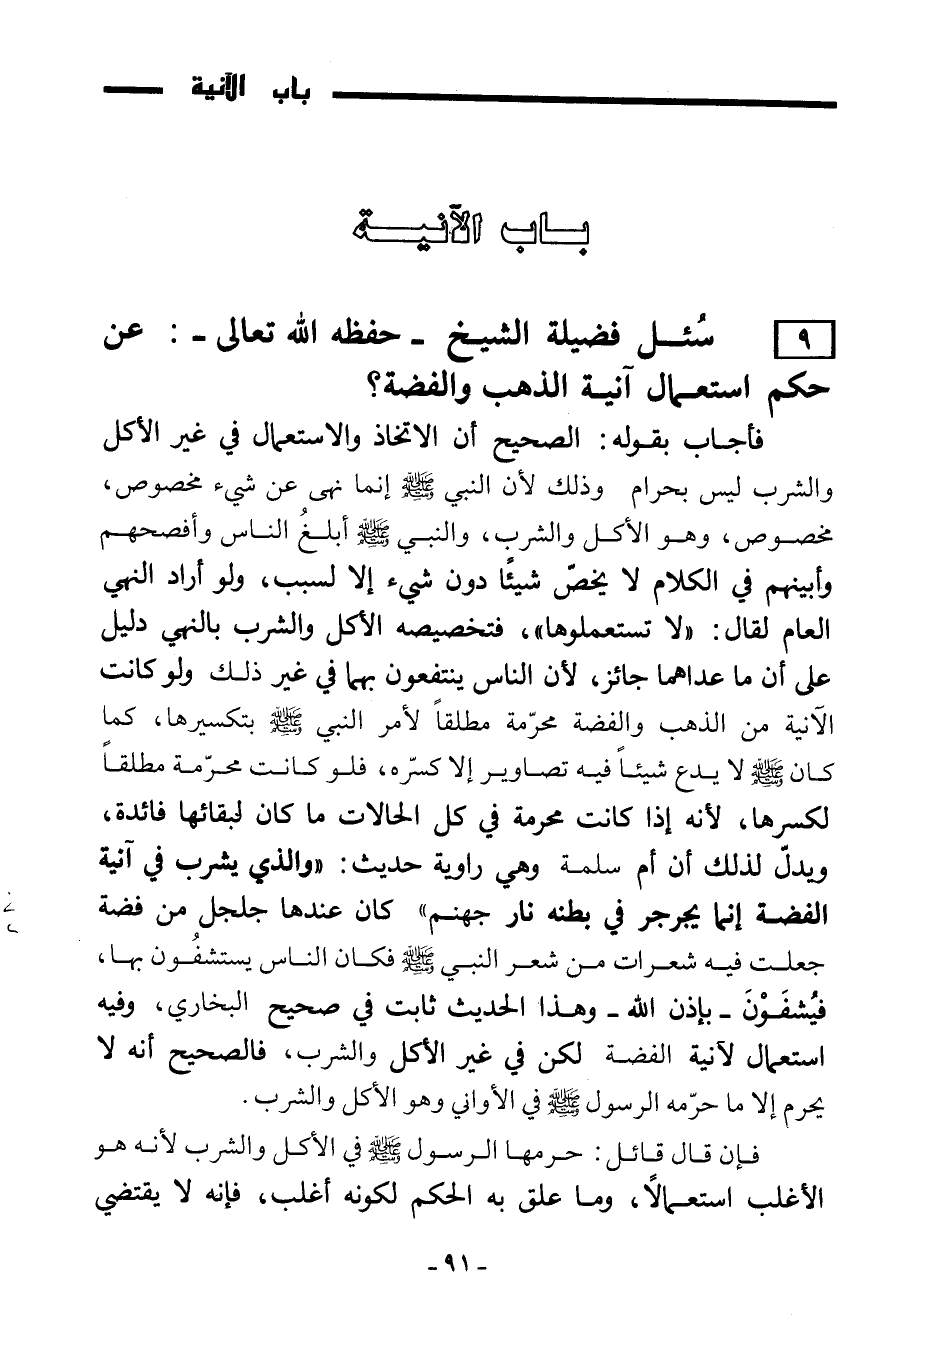 باب الآنية
باب الآنيـــة
٩ سُئـل فضيلة الشيـخ ـ حفظه الله تعالى ـ : عن
حكم استعـمال آنيـة الذهب والفضة؟
فأجـاب بقوله: الصحيح أن الاتخاذ والاستعمال في غير الأكل
والشرب ليس بحرام وذلك لأن النبي ﷺ إنما نهى عن شيء مخصوص،
مخصـوص، وهـو الأكـل والشرب، والنبـي ﷺ أبلـغُ النـاس وأفصحهـم
وأبينهم في الكلام لا يخصّ شيئًا دون شيء إلا لسبب، ولو أراد النهي
العام لقال: «لا تستعملوها»، فتخصيصه الأكل والشرب بالنهي دليل
على أن ما عداهما جائز، لأن الناس ينتفعون بهما في غير ذلـك ولو كانت
الآنية من الذهب والفضة محرّمة مطلقاً لأمر النبي ﷺ بتكسيرها، كما
كـان ﷺ لا يـدع شيئـاً فيـه تصـاويـر إلا كسرّه، فلـو كـانـت محـرّمـة مطلقـاً
لكسرها، لأنه إذا كانت محرمة في كل الحالات ما كان لبقائها فائدة،
ويدلّ لذلك أن أم سلمة وهي راوية حديث: «والذي يشرب في آنية
الفضـة إنما يجرجر في بطنه نار جهنـم» كان عندها جلجل من فضة
جعلـت فيـه شعـرات مـن شعـر النبـي ﷺ فكـان النـاس يستشفُـون بهـا،
فيُشفَـوْنَ ـ بإذن الله ـ وهـذا الحديث ثابت في صحيح البخاري، وفيه
استعمال لآنية الفضـة لكن في غير الأكل والشرب، فالصحيح أنه لا
يحرم إلا ما حرّمه الرسول ﷺ في الأواني وهو الأكل والشرب.
فـإن قـال قـائـل: حـرمهـا الـرسـول ﷺ في الأكـل والشرب لأنـه هـو
الأغلب استعـمالًا، ومـا علق به الحكم لكونه أغلب، فإنه لا يقتضي
- ٩١ -